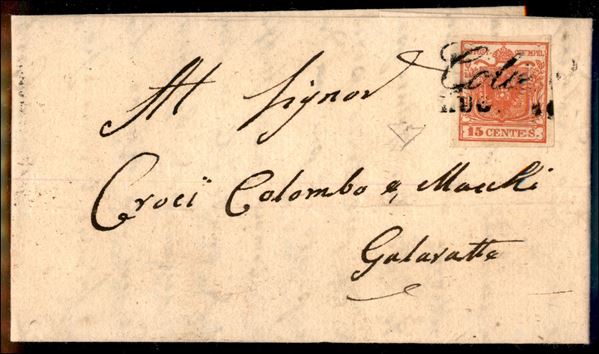 Al Signor
15 CENTES.
Croci Colombo e Macchi
Galaratte